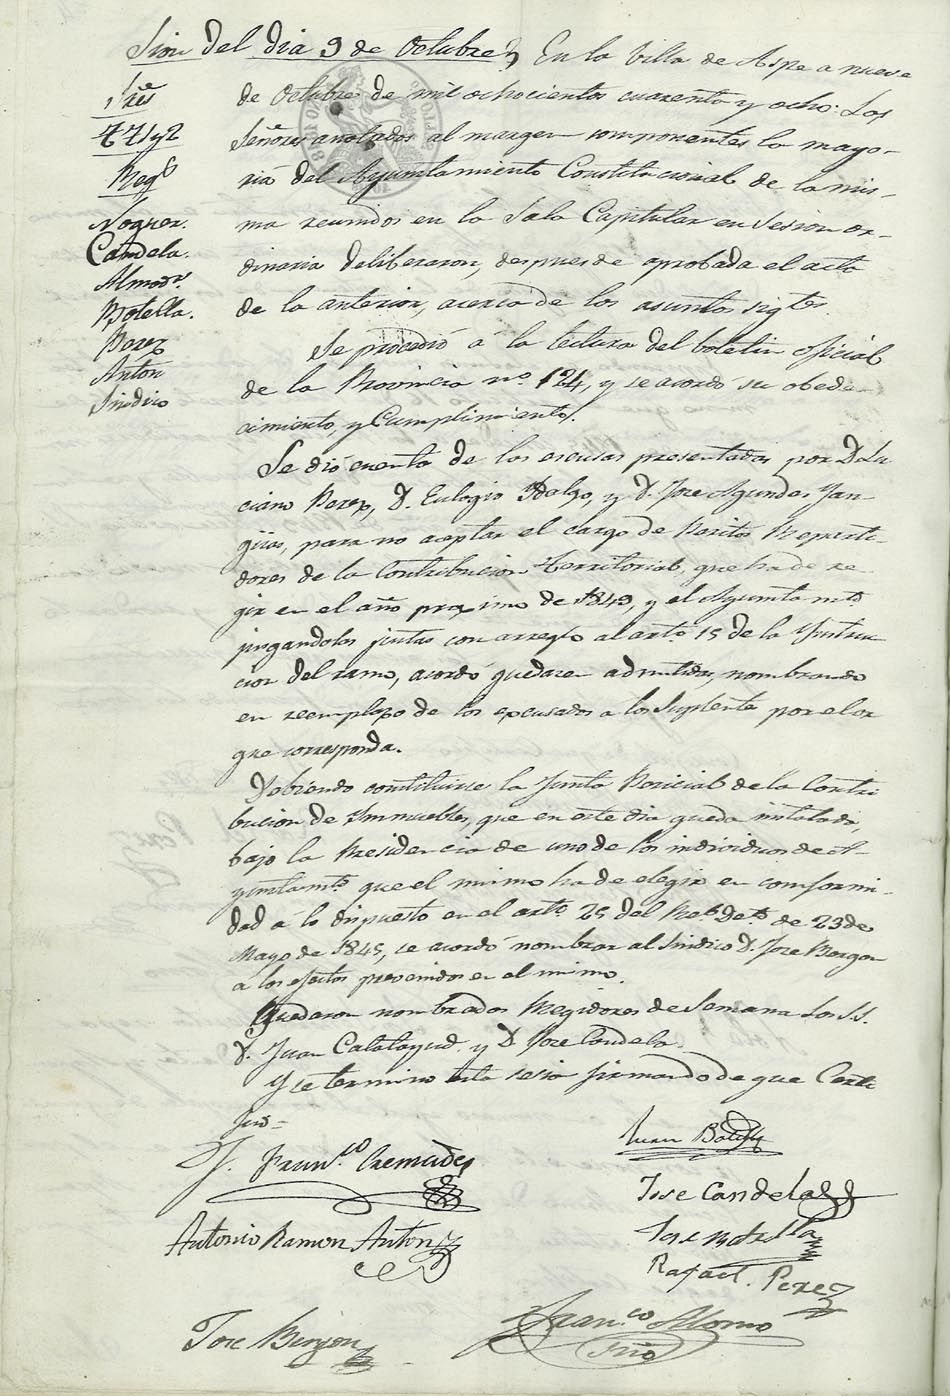 Sion del dia 9 de Octubre
En la Villa de Aspe a nueve
Sres
T. T. 1 y 2
Regs
Noguer.
Candela.
Almodr.
Botella.
Perez
Anton
Sindico
de Octubre de mil ochocientos cuarenta y ocho: Los
Señores anotados al margen componentes la mayo-
ria del Ayuntamiento Constitucional de la mis-
ma reunidos en la Sala Capitular en sesion or-
dinaria deliberaron, despues de aprobada el acta
de la anterior, acerca de los asuntos sigtes.
Se procedió á la lectura del boletin oficial
de la Provincia nº. 124, y se acordó su obede-
cimiento, y Cumplimiento.
Se dió cuenta de las escusas presentadas por D. Lu
ciano Perez, D. Eulogio Idalgo, y D. Jose Agundes
para no aceptar el cargo de Peritos Reparti-
dores de la Contribucion Territorial, que ha de re-
gir en el año proximo de 1849, y el Ayuntamto
juzgandolas justas con arreglo al arto 15 de la Ynstruc
cion del ramo, acordó quedaren admitidas, nombrando
en reemplazo de los escusados a los Suplentes por el or
que corresponda.
Debiendo constituirse la Junta Pericial de la Contri
bucion de Inmuebles, que en este dia queda instalada,
bajo la Presidencia de uno de los individuos de A-
yuntamto que el mismo ha de elegir en conformi-
dad á lo dispuesto en el arto 25 del Rel. Deto de 23 de
Mayo de 1845, se acordó nombrar al Sindico D. Jose Bergon
a los efectos prevenidos en el mismo.
Quedaron nombrados Regidores de Semana los S.S.
D. Juan Calatayud y D. Jose Candela.
Y se termino esta sesion firmando de que Certi
fico=
Juan Botella
J. Franco Cremades
Jose Candela
Antonio Ramon Anton
Jose Botella
Rafael Perez
Jose Bergon
Franco Alonso
Srio